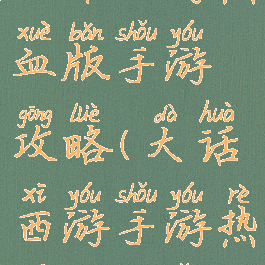 xuè bǎn shǒu yóu
血版手游
gōng lüè dà huà
攻略(大话
xī yóu shǒu yóu rè
西游手游热